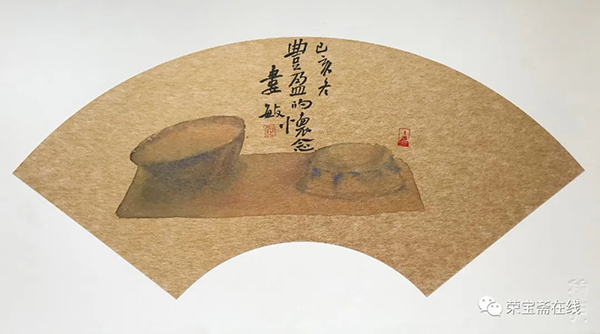 己亥冬
豐盈的懷念
婁敏
荣宝斋在线